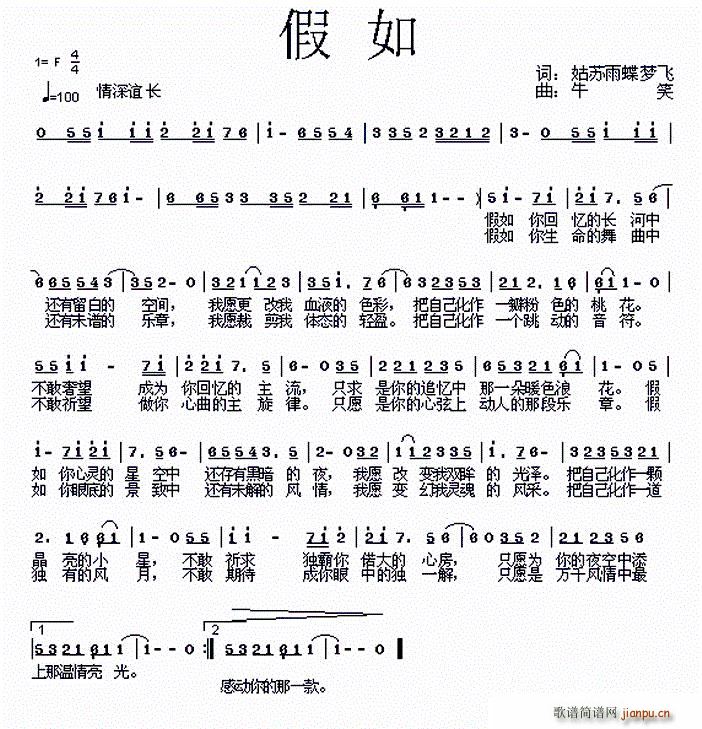 假如
1= F 4/4
♩=100 情深谊长
词：姑苏雨蝶梦飞
曲：牛 笑
0 5 5 i i i 2 2 i 7 6 | i - 6 5 5 5 4 | 3 3 5 2 3 2 1 2 | 3 - 0 5 5 i i i |
2 2 i 7 6 i - | 6 6 5 3 3 3 5 2 2 1 | 6 6 1 1 - - | 5 i - 7 i | 2 i 7. 5 6 |
假如 你回 忆的长 河中
假如 你生 命的舞 曲中
6 6 5 5 4 3 | 3 5 2 - 0 | 3 2 1 1 2 3 | 3 5 i. 7 6 | 6 5 3 5 2 3 | 2 1 2. 1 6 | 6 1 1 - 0 |
还有留白的 空间， 我愿更 改我 血液的 色彩， 把自己化作 一瓣粉 色的 桃花。
还有未谱的 乐章， 我愿裁 剪我 体态的 轻盈。 把自己化作 一个跳 动的 音符。
5 5 i i - 7 i | 2 2 i 7. 5 | 6 - 0 3 5 | 2 2 1 2 3 5 | 6 5 2 3 2 1 6 1 | 1 - 0 5 |
不敢奢望 成为 你回忆的 主 流， 只求 是你的追忆中 那一朵暖色浪 花。 假
不敢祈望 做你 心曲的主 旋 律。 只愿 是你的心弦上 动人的那段乐 章。 假
i - 7 i 2 i | 7. 5 6 - | 6 6 5 5 4 3 | 3 5 2 - 0 3 2 | 1 1 2 3 3 5 | i. 7 6 - | 3 2 3 5 3 2 1 |
如 你心灵的 星 空中 还存有黑暗 的 夜， 我愿 改 变我双眸 的 光泽。 把自己化作一颗
如 你眼底的 景 致中 还有未解的 风 情， 我愿 变 幻我灵魂 的 风采。 把自己化作一道
2. 1 6 6 1 | 1 - 0 5 5 | i i - 7 i 2 | 2 i 7. 5 6 | 6 0 3 5 2 | 2 1 2 3 5 6 |
晶 亮的小 星， 不敢 祈求 独霸你 偌大的 心房， 只愿为 你的夜空中添
独 有的风 月， 不敢 期待 成你眼 中的独 一解， 只愿是 万千风情中最
1
2
5 3 2 1 6 1 1 | 1 - - 0 :‖ 5 3 2 1 6 1 1 | 1 - - 0 ‖
上那温情亮 光。
感动你的那一款。
歌谱简谱网 jianpu.cn